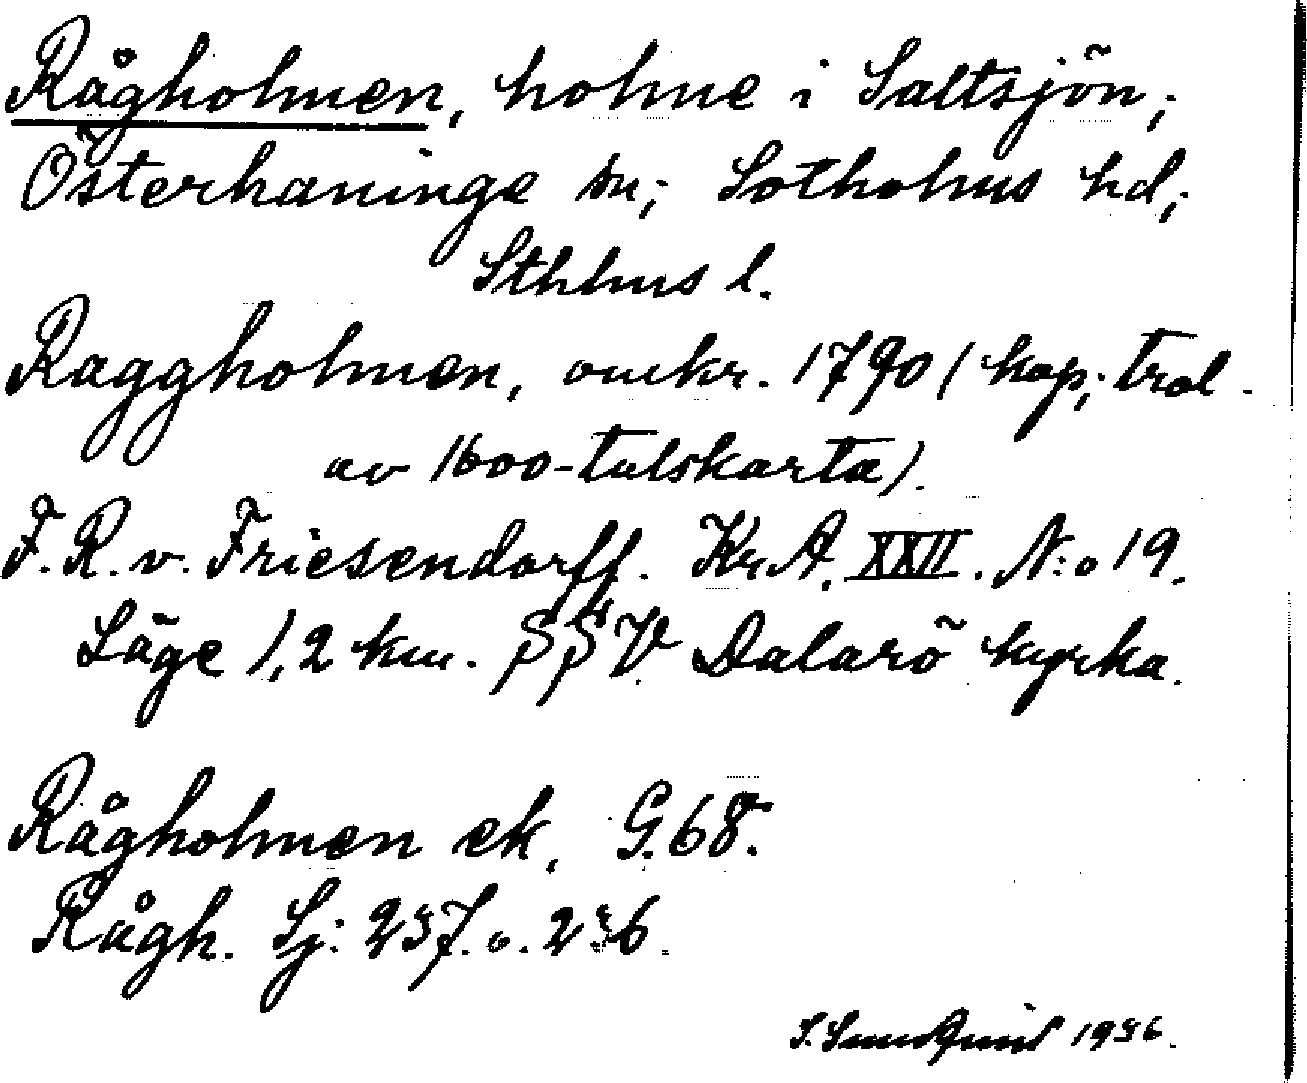 Rågholmen, holme i Saltsjön;
Österhaninge sn; Sotholms hd;
Sthlms l.
Raggholmen, omkr. 1790 (kop; trol.
av 1600-talskarta).
F. R. v. Friesendorff. Kr.A. XXII. N:o 19.
Läge 1,2 km. SSV. Dalarö kyrka.
Rågholmen ek. G. 68.
Rågh. Sj: 237. o. 236.
S. Sundquist 1936.